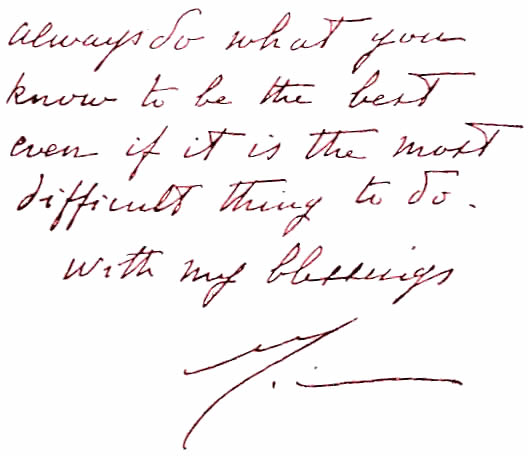 always do what you
know to be the best
even if it is the most
difficult thing to do.
with my blessings